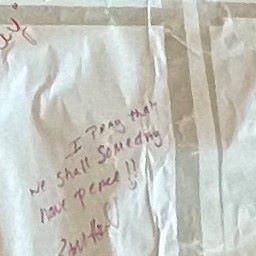 I Pray that
we shall someday
have peace!!